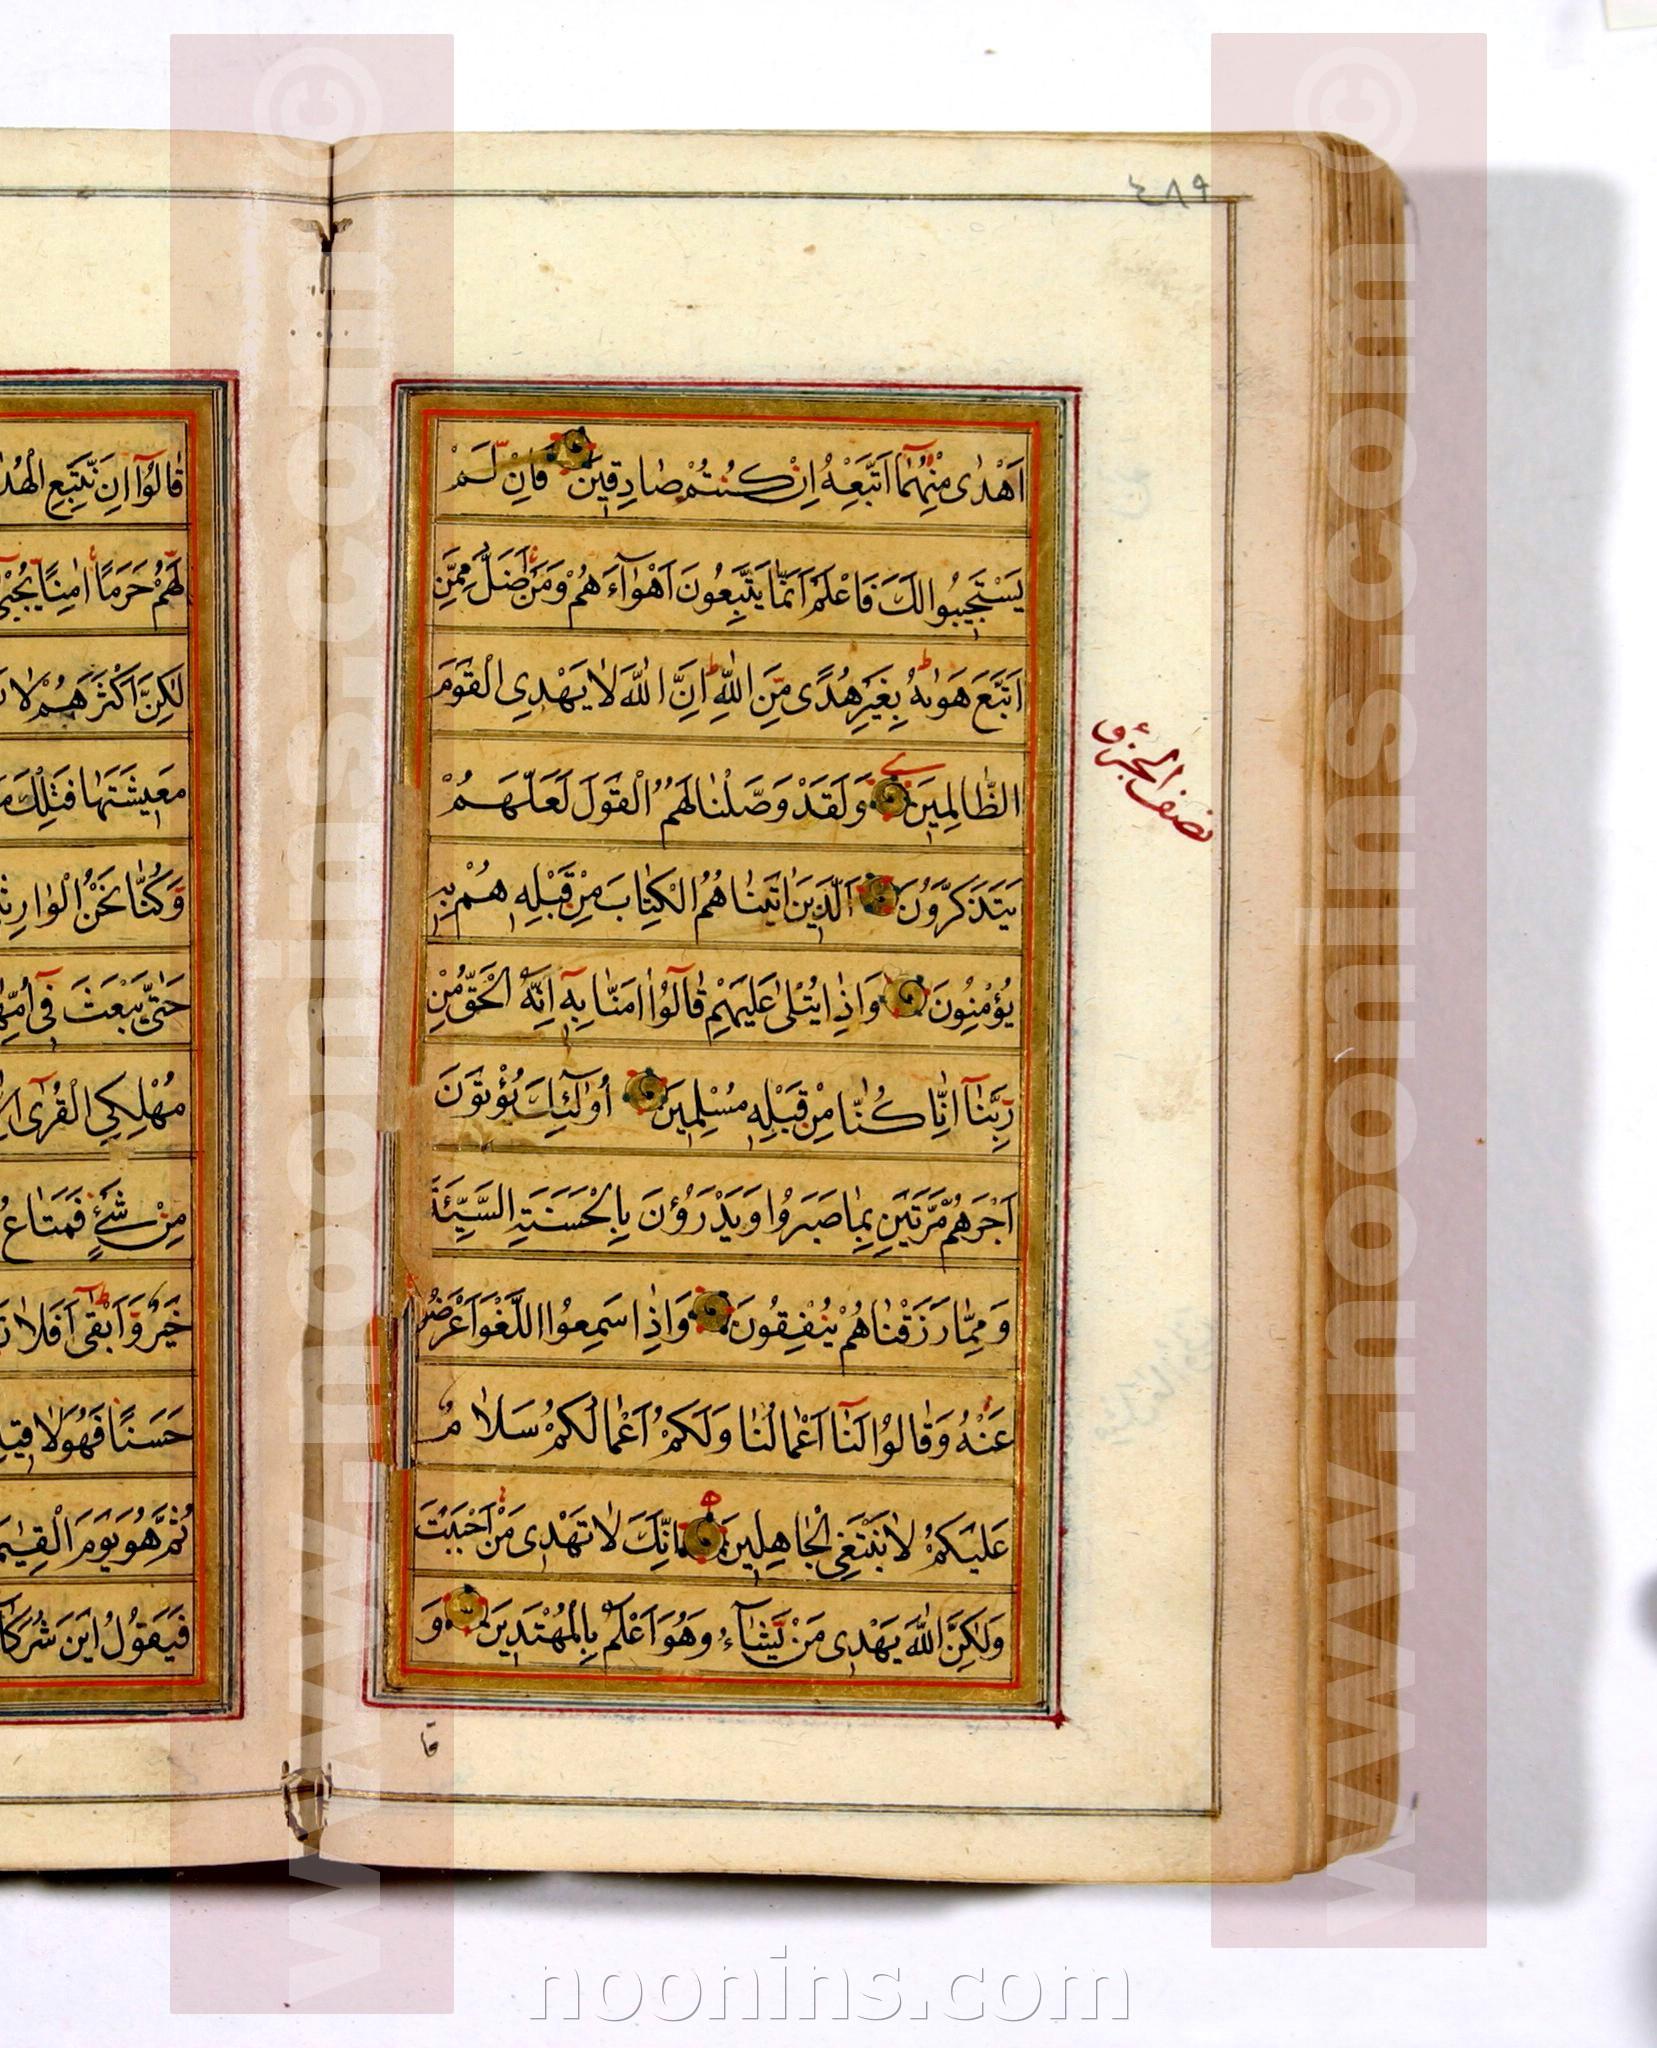 ٤٨٩
اَهْدٰى مِنْهُمٰٓا اَتَّبِعْهُ اِنْ كُنْتُمْ صٰادِقِينَ فَاِنْ لَمْ
يَسْتَجِيبُوا لَكَ فَاعْلَمْ اَنَّمٰا يَتَّبِعُونَ اَهْوٰٓاءَهُمْ وَمَنْ اَضَلُّ مِمَّنِ
اتَّبَعَ هَوٰيهُ بِغَيْرِ هُدًى مِنَ اللّٰهِ اِنَّ اللّٰهَ لٰا يَهْدِى الْقَوْمَ
الظّٰالِمِينَ وَلَقَدْ وَصَّلْنٰا لَهُمُ الْقَوْلَ لَعَلَّهُمْ
يَتَذَكَّرُونَ اَلَّذِينَ اٰتَيْنٰاهُمُ الْكِتٰابَ مِنْ قَبْلِهِ هُمْ بِهِ
يُؤْمِنُونَ وَاِذٰا يُتْلٰى عَلَيْهِمْ قٰالُوٓا اٰمَنّٰا بِهٓ اِنَّهُ الْحَقُّ مِنْ
رَبِّنٰٓا اِنّٰا كُنّٰا مِنْ قَبْلِهِ مُسْلِمِينَ اُولٰٓئِكَ يُؤْتَوْنَ
اَجْرَهُمْ مَرَّتَيْنِ بِمٰا صَبَرُوا وَيَدْرَؤُنَ بِالْحَسَنَةِ السَّيِّئَةَ
وَمِمّٰا رَزَقْنٰاهُمْ يُنْفِقُونَ وَاِذٰا سَمِعُوا اللَّغْوَ اَعْرَضُوا
عَنْهُ وَقٰالُوا لَنٰٓا اَعْمٰالُنٰا وَلَكُمْ اَعْمٰالُكُمْ سَلٰامٌ
عَلَيْكُمْ لٰا نَبْتَغِى الْجٰاهِلِينَ اِنَّكَ لٰا تَهْدِى مَنْ اَحْبَبْتَ
وَلٰكِنَّ اللّٰهَ يَهْدِى مَنْ يَشٰٓاءُ وَهُوَ اَعْلَمُ بِالْمُهْتَدِينَ وَ
قا
نصف الجزؤ
قٰالُوٓا اِنْ نَتَّبِعِ الْهُدٰ
لَهُمْ حَرَمًا اٰمِنًا يُجْبٰى
لٰكِنَّ اَكْثَرَهُمْ لٰا
مَعِيشَتَهٰا فَتِلْكَ
وَكُنّٰا نَحْنُ الْوٰارِثِ
حَتّٰى يَبْعَثَ فِىٓ اُمِّهٰ
مُهْلِكِى الْقُرٰىٓ
مِنْ شَىْءٍ فَمَتٰاعُ
خَيْرٌ وَاَبْقٰىٓ اَفَلٰا
حَسَنًا فَهُوَ لٰاقِيهِ
ثُمَّ هُوَ يَوْمَ الْقِيٰمَ
فَيَقُولُ اَيْنَ شُرَكٰٓا
www.noonins.com ©
www.noonins.com ©
noonins.com